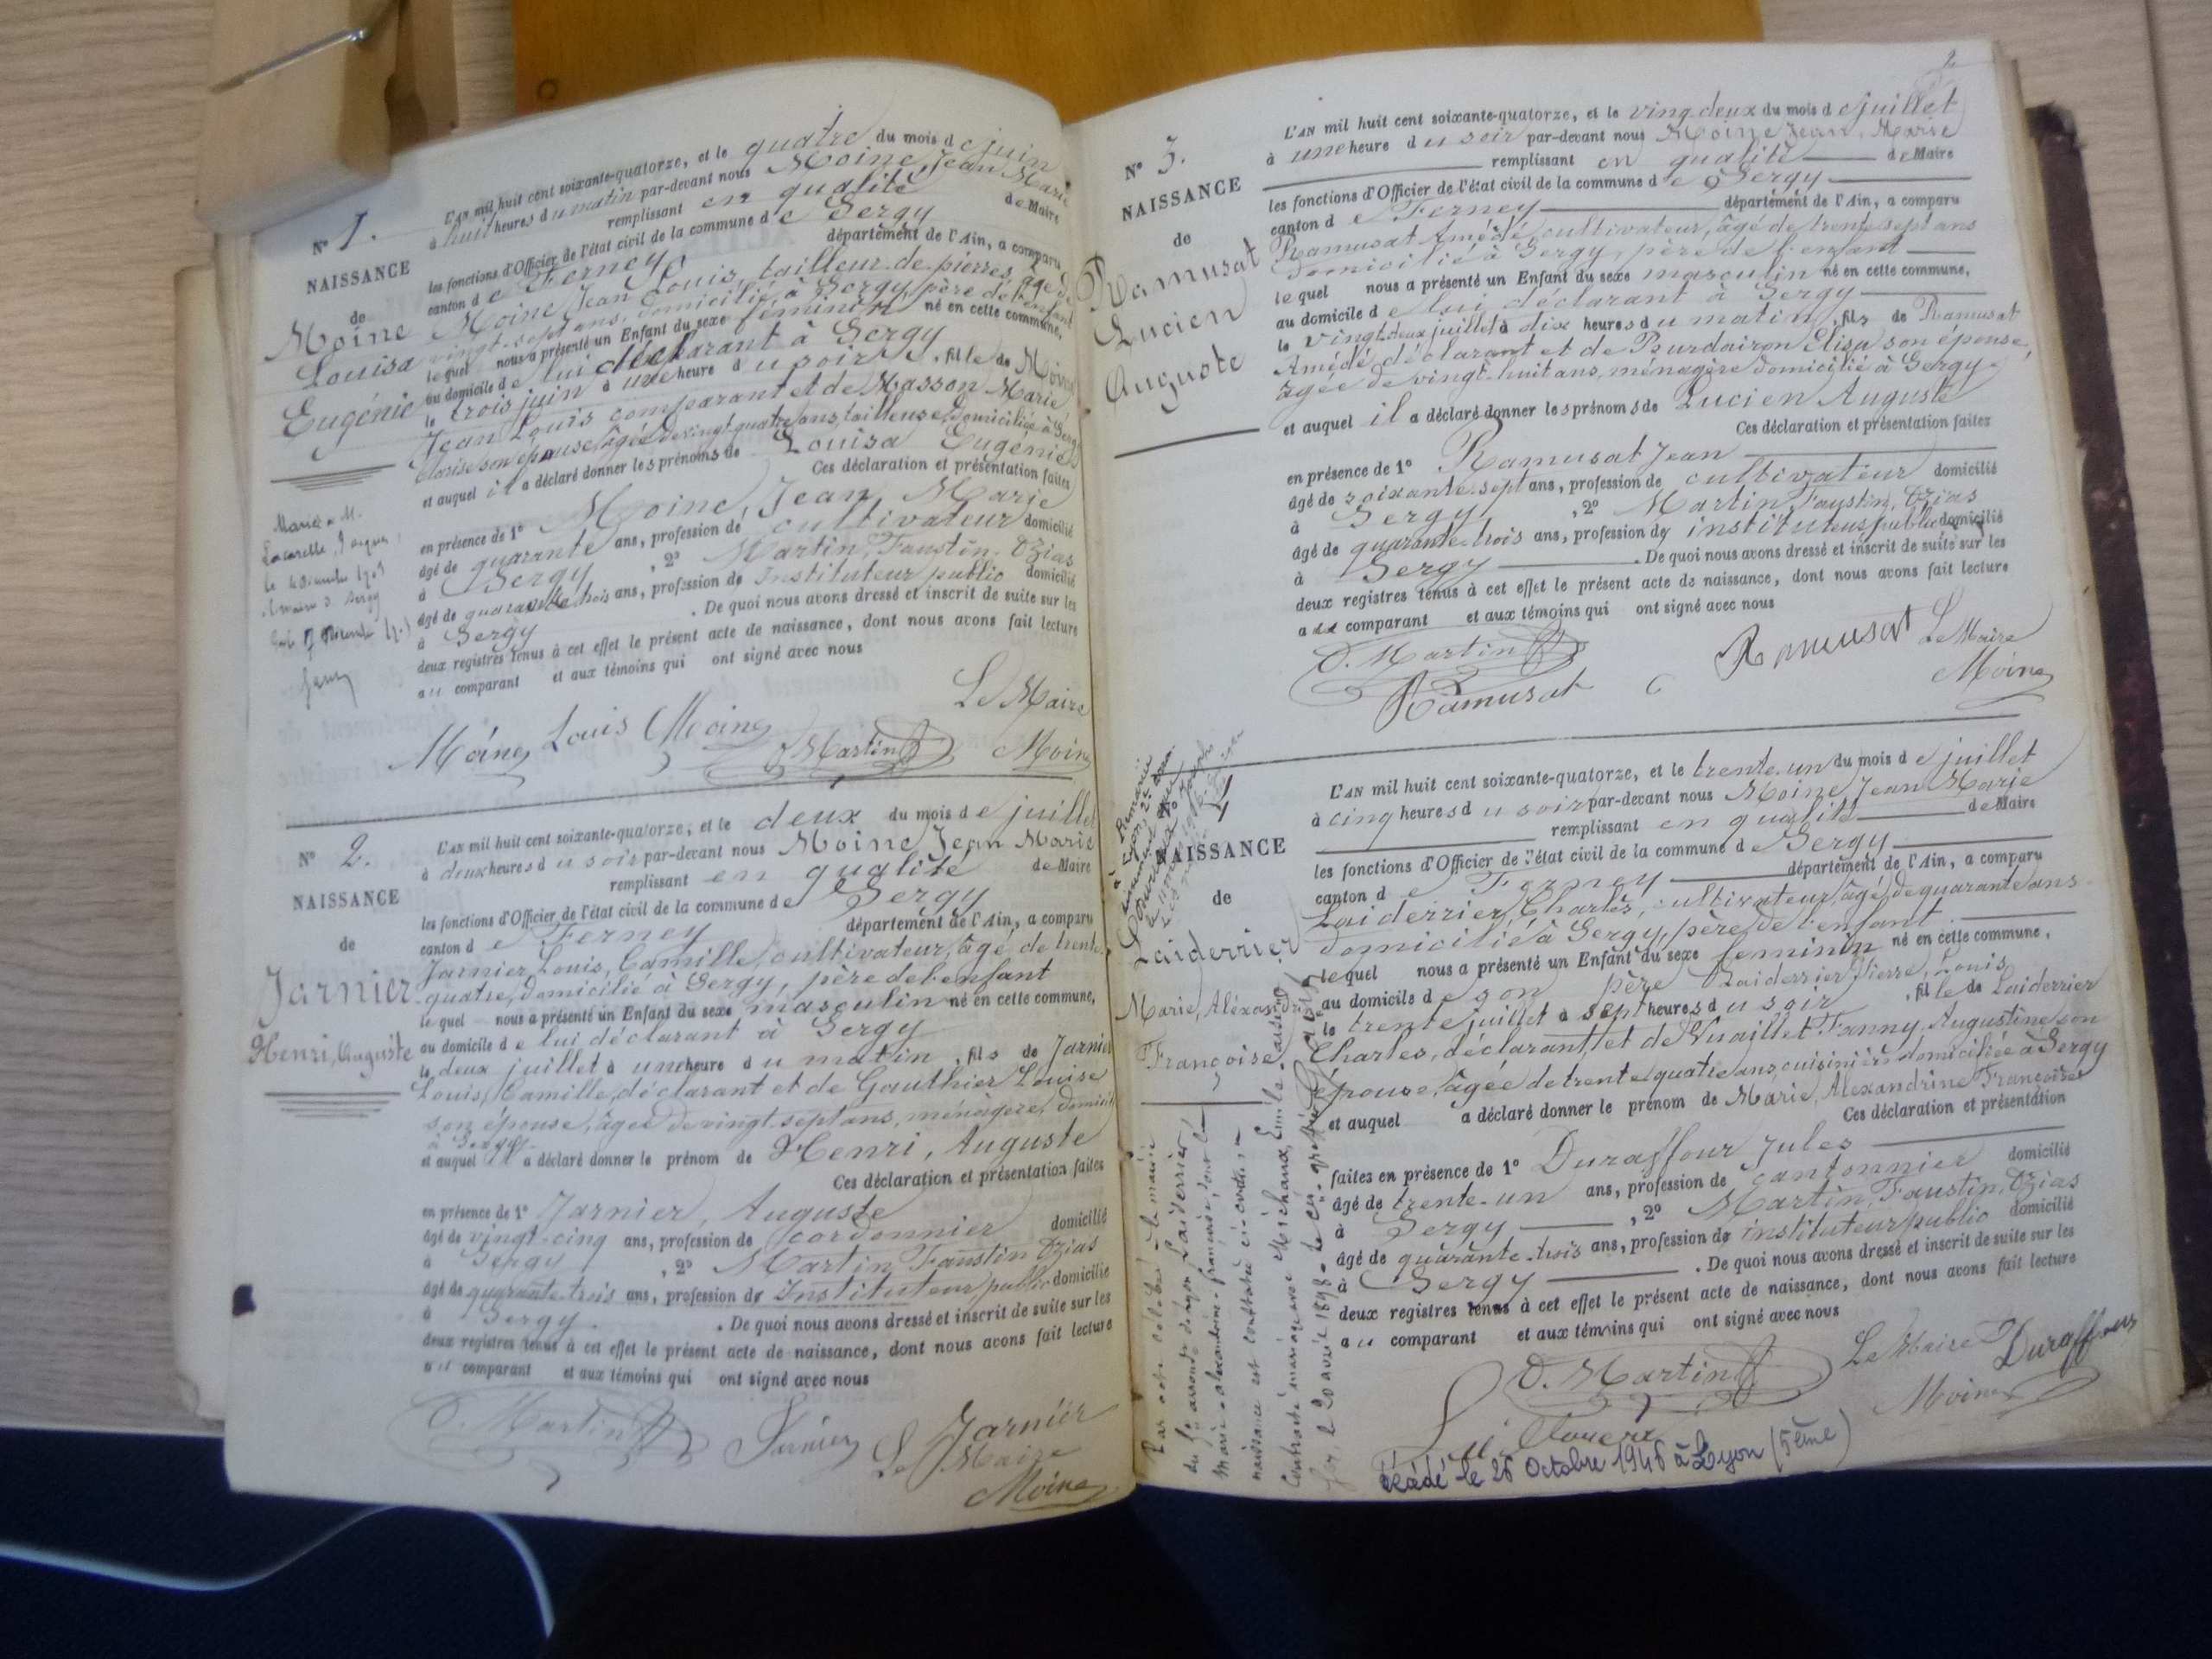 N° 1.
NAISSANCE
de
Moine
Louisa
Eugénie
L'AN mil huit cent soixante-quatorze, et le quatre du mois de juin
à huit heures du matin par-devant nous Moine, Jean Marie
remplissant en qualité de Maire
les fonctions d'Officier de l'état civil de la commune de Sergy
canton de Ferney département de l'Ain, a comparu
Moine Jean Louis, tailleur de pierres, âgé de
vingt-sept ans, domicilié à Sergy, père de l'enfant
lequel nous a présenté un Enfant du sexe féminin né en cette commune,
au domicile de lui déclarant à Sergy
le trois juin à une heure du soir, fille de Moine
Jean Louis comparant et de Masson Marie
son épouse, âgée de vingt quatre ans, tailleuse, domiciliée à Sergy
et auquel il a déclaré donner les prénoms de Louisa Eugénie
Ces déclaration et présentation faites
en présence de 1° Moine, Jean, Marie
âgé de quarante ans, profession de cultivateur domicilié
à Sergy, 2° Martin, Faustin, Ozias
âgé de quarante-trois ans, profession de Instituteur public domicilié
à Sergy. De quoi nous avons dressé et inscrit de suite sur les
deux registres tenus à cet effet le présent acte de naissance, dont nous avons fait lecture
au comparant et aux témoins qui ont signé avec nous
Le Maire
Moine Louis Moine O. Martin Moine
N° 2.
NAISSANCE
de
Jarnier
Henri, Auguste
L'AN mil huit cent soixante-quatorze, et le deux du mois de juillet
à deux heures du soir par-devant nous Moine Jean Marie
remplissant en qualité de Maire
les fonctions d'Officier de l'état civil de la commune de Sergy
canton de Ferney département de l'Ain, a comparu
Jarnier, Louis, Camille, cultivateur, âgé de trente
quatre, domicilié à Sergy, père de l'enfant
lequel nous a présenté un Enfant du sexe masculin né en cette commune,
au domicile de lui déclarant à Sergy
le deux juillet à une heure du matin, fils de Jarnier
Louis, Camille, déclarant et de Gauthier Louise
son épouse, âgée de vingt sept ans, ménagère, domiciliée
à Sergy
et auquel il a déclaré donner le prénom de Henri, Auguste
Ces déclaration et présentation faites
en présence de 1° Jarnier, Auguste
âgé de vingt-cinq ans, profession de cordonnier domicilié
à Sergy, 2° Martin Faustin Ozias
âgé de quarante-trois ans, profession de Instituteur public domicilié
à Sergy. De quoi nous avons dressé et inscrit de suite sur les
deux registres tenus à cet effet le présent acte de naissance, dont nous avons fait lecture
au comparant et aux témoins qui ont signé avec nous
O. Martin Jarnier Jarnier
Le Maire
Moine
N° 3.
NAISSANCE
de
Ramusat
Lucien
Auguste
L'AN mil huit cent soixante-quatorze, et le vingt deux du mois de juillet
à une heure du soir par-devant nous Moine Jean, Marie
remplissant en qualité de Maire
les fonctions d'Officier de l'état civil de la commune de Sergy
canton de Ferney département de l'Ain, a comparu
Ramusat Amédé, cultivateur, âgé de trente sept ans
domicilié à Sergy, père de l'enfant
lequel nous a présenté un Enfant du sexe masculin né en cette commune,
au domicile de lui déclarant à Sergy
le vingt-deux juillet à dix heures du matin, fils de Ramusat
Amédé, déclarant et de Bourdairon Elisa son épouse,
âgée de vingt-huit ans, ménagère domicilié à Sergy
et auquel il a déclaré donner les prénoms de Lucien Auguste
Ces déclaration et présentation faites
en présence de 1° Ramusat Jean
âgé de soixante-sept ans, profession de cultivateur domicilié
à Sergy, 2° Martin, Faustin, Ozias
âgé de quarante-trois ans, profession de instituteur public domicilié
à Sergy. De quoi nous avons dressé et inscrit de suite sur les
deux registres tenus à cet effet le présent acte de naissance, dont nous avons fait lecture
au comparant et aux témoins qui ont signé avec nous
O. Martin Ramusat Le Maire
Ramusat Moine
4
NAISSANCE
de
Laiderrier
Marie, Alexandrine
Françoise
L'AN mil huit cent soixante-quatorze, et le trente-un du mois de juillet
à cinq heures du soir par-devant nous Moine Jean Marie
remplissant en qualité de Maire
les fonctions d'Officier de l'état civil de la commune de Sergy
canton de Ferney département de l'Ain, a comparu
Laiderrier, Charles, cultivateur, âgé de quarante ans
domicilié à Sergy, père de l'enfant
lequel nous a présenté un Enfant du sexe féminin né en cette commune,
au domicile de son père Laiderrier Pierre, Louis
le trente juillet à sept heures du soir, fille de Laiderrier
Charles, déclarant, et de Vuaillet Fanny, Augustine son
épouse, âgée de trente quatre ans, cuisinière domiciliée à Sergy
et auquel a déclaré donner le prénom de Marie, Alexandrine Françoise
Ces déclaration et présentation
faites en présence de 1° Duraffour Jules
âgé de trente-un ans, profession de cantonnier domicilié
à Sergy, 2° Martin, Faustin, Ozias
âgé de quarante-trois ans, profession de instituteur public domicilié
à Sergy. De quoi nous avons dressé et inscrit de suite sur les
deux registres tenus à cet effet le présent acte de naissance, dont nous avons fait lecture
au comparant et aux témoins qui ont signé avec nous
O. Martin Le Maire Duraffour
Moine
décédé le 26 Octobre 1946 à Lyon (5ème)